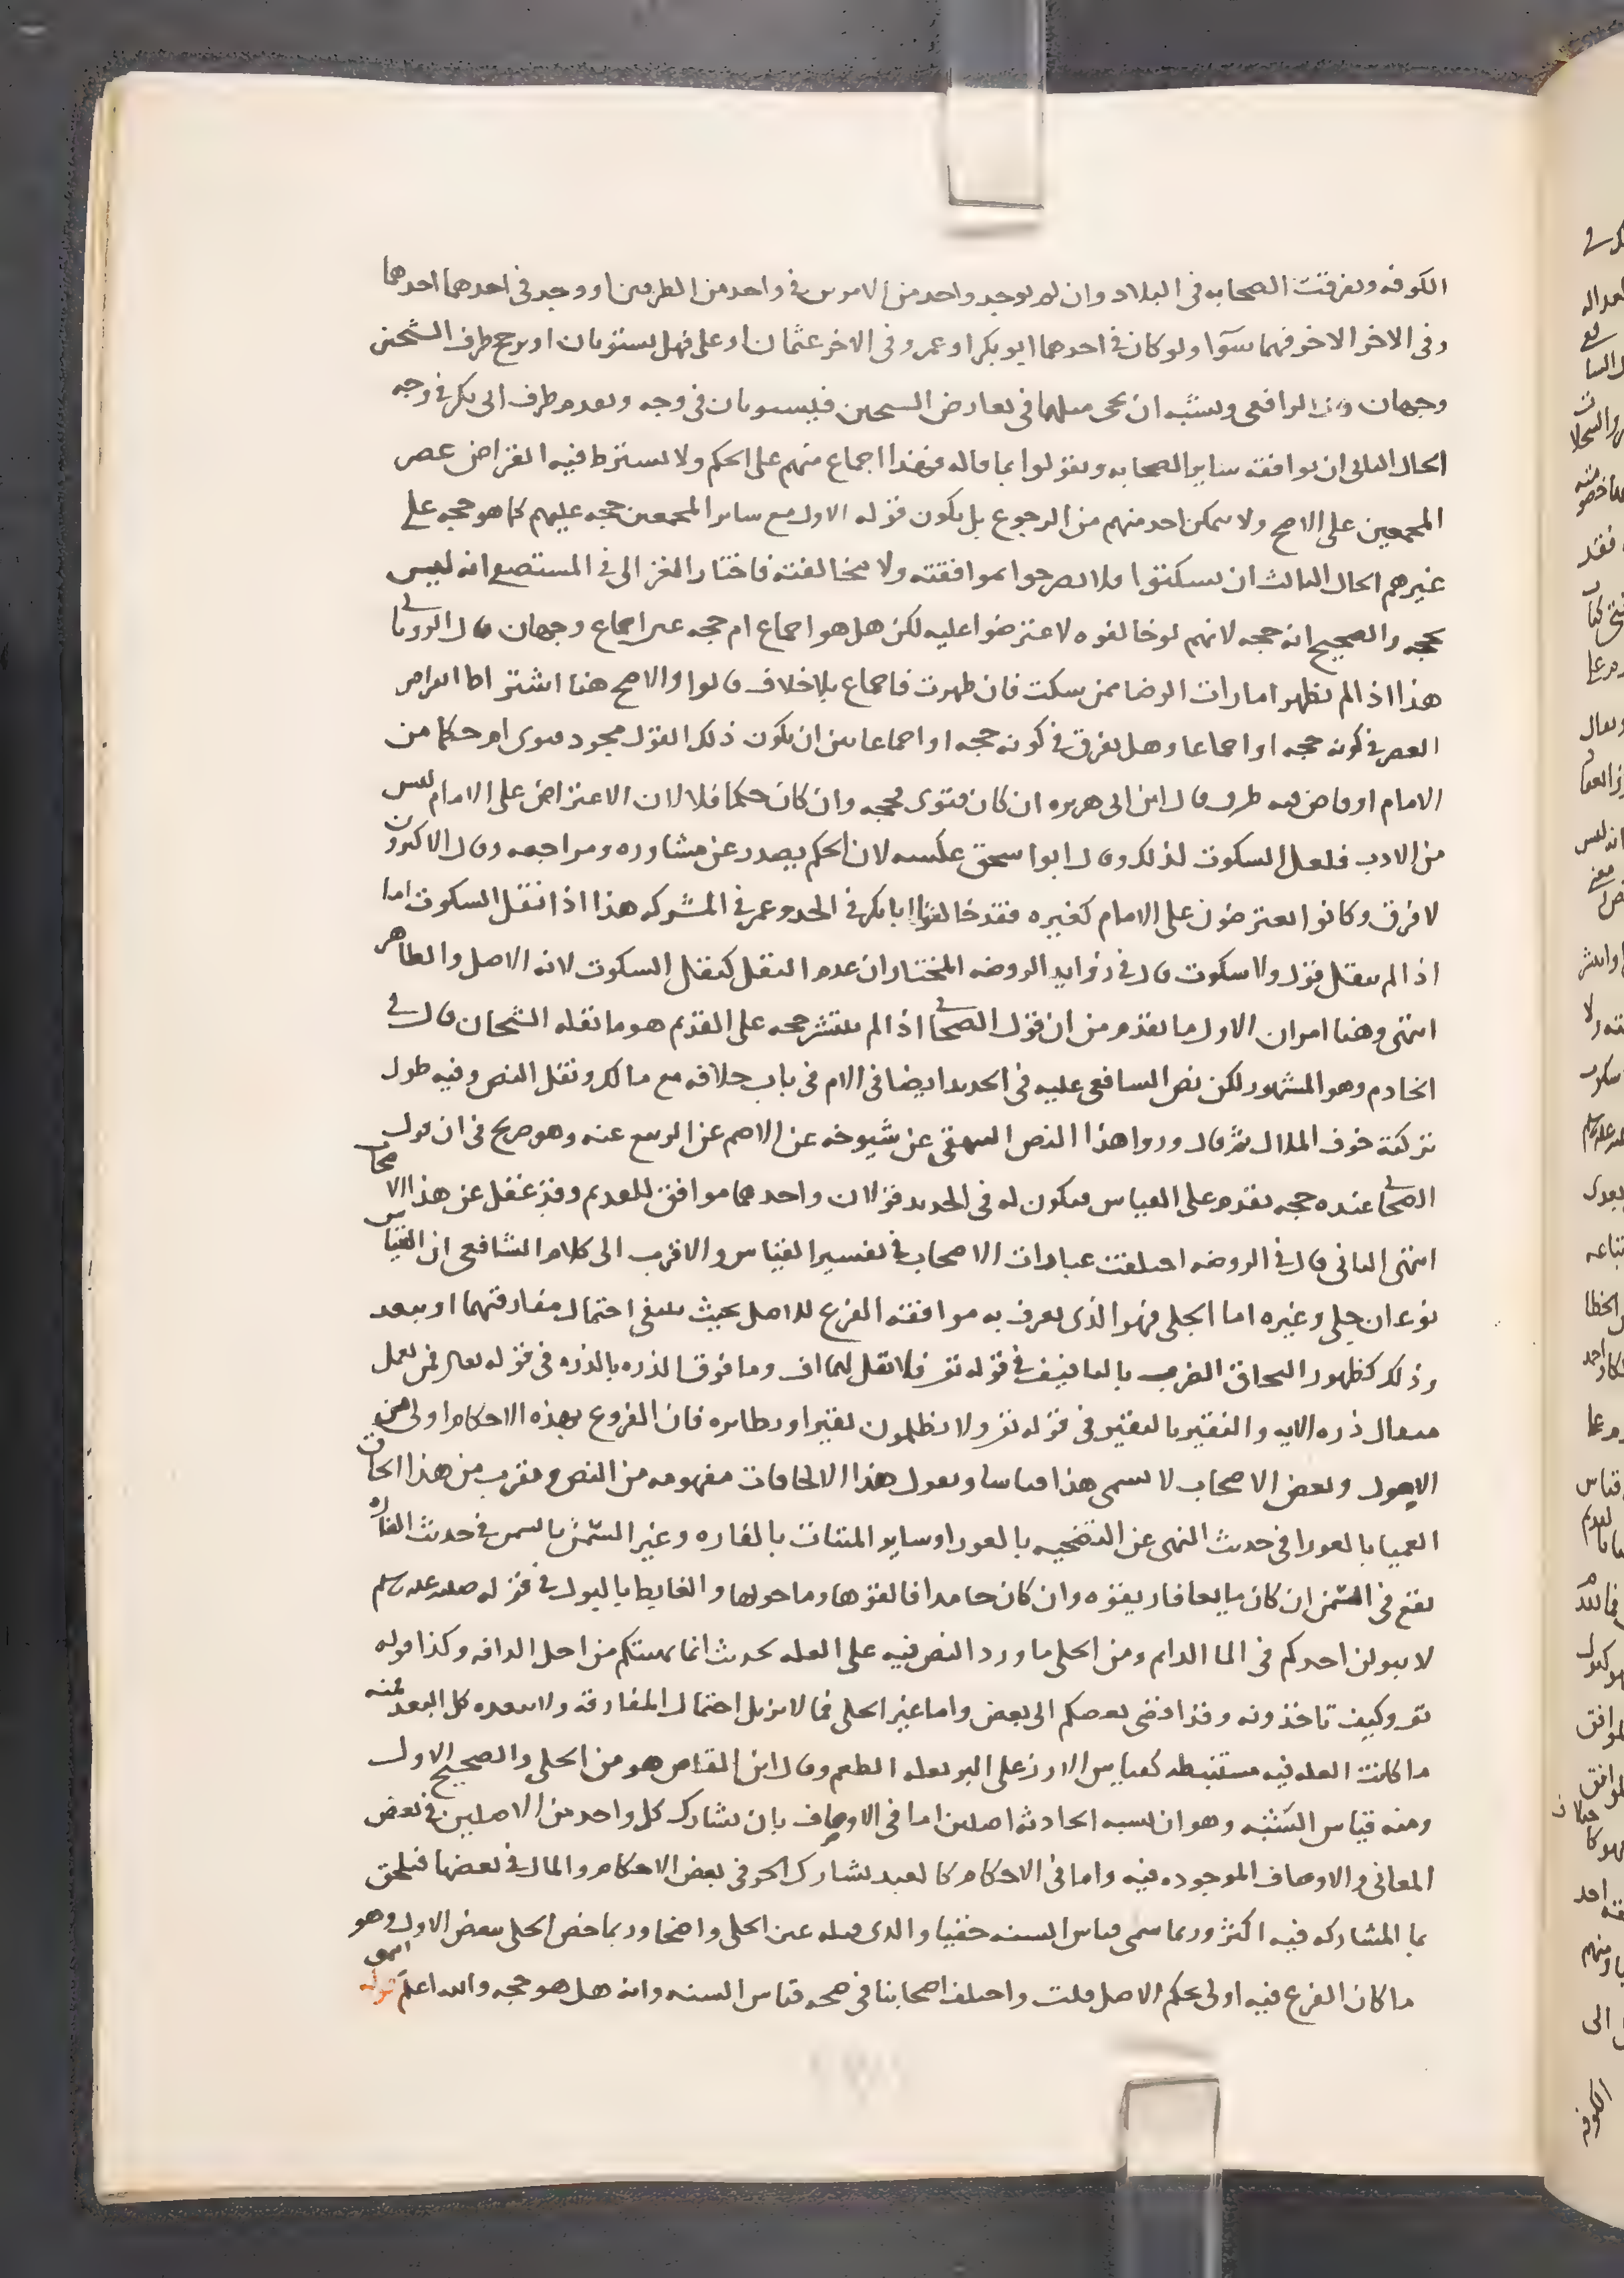 الكوفه وتفرقت الصحابه فى البلاد وان لم يوجد واحد من الامور فى واحد من الطرفين او وجد فى احدهما احدهما
وفى الاخر الاخر فهما سوآ ولو كان فى احدهما ابو بكر او عمر وفى الاخر عثمان او على فهل يستويان او يرجح طرف الشيخين
وجهان قال الرافعى ويشبه ان يجى مثلهما فى تعارض الشيخين فيستويان فى وجه ويقدم طرف ابى بكر فى وجه
الحال الثانى ان يوافقه ساير الصحابه ويقولوا بما قاله فهذا اجماع منهم على الحكم ولا يشترط فيه انقراض عصر
المجمعين على الاصح ولا يتمكن احد منهم من الرجوع بل يكون قوله الاول مع ساير المجمعين حجه عليهم كما هو حجه على
غيرهم الحال الثالث ان يسكتوا فلا يصرحوا بموافقته ولا مخالفته فاختار الغزالى فى المستصفى انه ليس
بحجه والصحيح انه حجه لانهم لو خالفوه لاعترضوا عليه لكن هل هو اجماع ام حجه غير اجماع وجهان قال الرويانى
هذا اذا لم يظهر امارات الرضا ممن سكت فان ظهرت فاجماع بلا خلاف قالوا والاصح هنا اشتراط انقراض
العصر فى كونه حجه او اجماعا وهل يفرق فى كونه حجه او اجماعا بين ان يكون ذلك القول مجرد فتوى ام حكما من
الامام او قاض فيه طرق قال ابن ابى هريره ان كان فتوى فحجه وان كان حكما فلا لان الاعتراض على الامام ليس
من الادب فلعل السكوت لذلك وقال ابو اسحق عكسه لان الحكم يصدر عن مشاوره ومراجعه وقال الاكثرون
لا فرق وكانوا يعترضون على الامام كغيره فقد خالفوا ابا بكر فى الجد وعمر فى المشركه هذا اذا نقل السكوت اما
اذا لم ينقل قول ولا سكوت قال فى زوايد الروضه المختار ان عدم النقل كنقل السكوت لانه الاصل والظاهر
انتهى وهنا امران الاول ما تقدم من ان قول الصحابى اذا لم ينتشر حجه على القديم هو ما نقله الشيخان قال فى
الخادم وهو المشهور لكن نص الشافعى عليه فى الجديد ايضا فى الام فى باب خلافه مع مالك ونقل النص وفيه طول
تركته خوف الملال ثم قال وروا هذا النص البيهقى عن شيوخه عن الاصم عن الربيع عنه وهو صريح فى ان قول
الصحابى عنده حجه يقدم على القياس فيكون له فى الجديد قولان واحدهما موافق للقديم وقد غفل عن هذا الاصحاب
انتهى الثانى قال فى الروضه اختلفت عبارات الاصحاب فى تفسير القياس والاقرب الى كلام الشافعى ان القياس
نوعان جلى وغيره اما الجلى فهو الذى يعرف به موافقه الفرع للاصل بحيث ينتفى احتمال مفارقتهما او يبعد
وذلك كظهور التحاق الضرب بالتافيف فى قوله تع فلا تقل لهما اف وما فوق الذره بالذره فى قوله تعالى فمن يعمل
مثقال ذره الايه والنقير بالنقير فى قوله تع ولا يظلمون نقيرا ونظايره فان الفروع بهذه الاحكام اولى من
الاصول وبعض الاصحاب لا يسمى هذا قياسا ويقول هذا الالحاقات مفهومه من النص ويقرب من هذا الحاق
العميا بالعورا فى حديث النهى عن التضحيه بالعورا وساير الميتات بالفاره وغير السمن بالسمن فى حديث الفاره
تقع فى السمن ان كان مايعا فاريقوه وان كان جامدا فالقوها وما حولها والغايط بالبول فى قوله صلى الله عليه وسلم
لا يبولن احدكم فى الما الدايم ومن الجلى ما ورد النص فيه على العله كحديث انما نهيتكم من اجل الدافه وكذا قوله
تع وكيف تاخذونه وقد افضى بعضكم الى بعض واما غير الجلى فما لا يزيل احتمال المفارقه ولا يبعده كل البعد فمنه
ما كانت العله فيه مستنبطه كقياس الارز على البر بعله الطعم وقال ابن القاص هو من الجلى والصحيح الاول
ومنه قياس الشبه وهو ان تشبه الحادثه اصلين اما فى الاوصاف بان تشارك كل واحد من الاصلين فى بعض
المعانى والاوصاف الموجوده فيه واما فى الاحكام كالعبد يشارك الحر فى بعض الاحكام والمال فى بعضها فيلحق
بما المشاركه فيه اكثر وربما سمى قياس الشبه خفيا والذى قبله غير الجلى واضحا وربما خص الجلى ببعض الاول وهو
ما كان الفرع فيه اولى بحكم الاصل قلت واختلف اصحابنا فى صحه قياس الشبه وانه هل هو حجه والله اعلم انتهى قوله